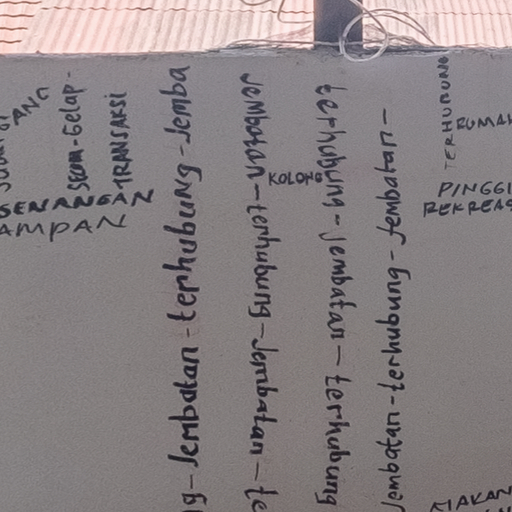 SENANGAN
AMPAN
TRANSAKSI
Jembatan-terhubung-Jemba
Jembatan-terhubung-Jembatan-te
KOLONG
terhubung-Jembatan-terhubung
Jembatan-terhubung-Jembatan-
TERHUBUNG
RUMAH
PINGGI
REKREAS
MAKAN